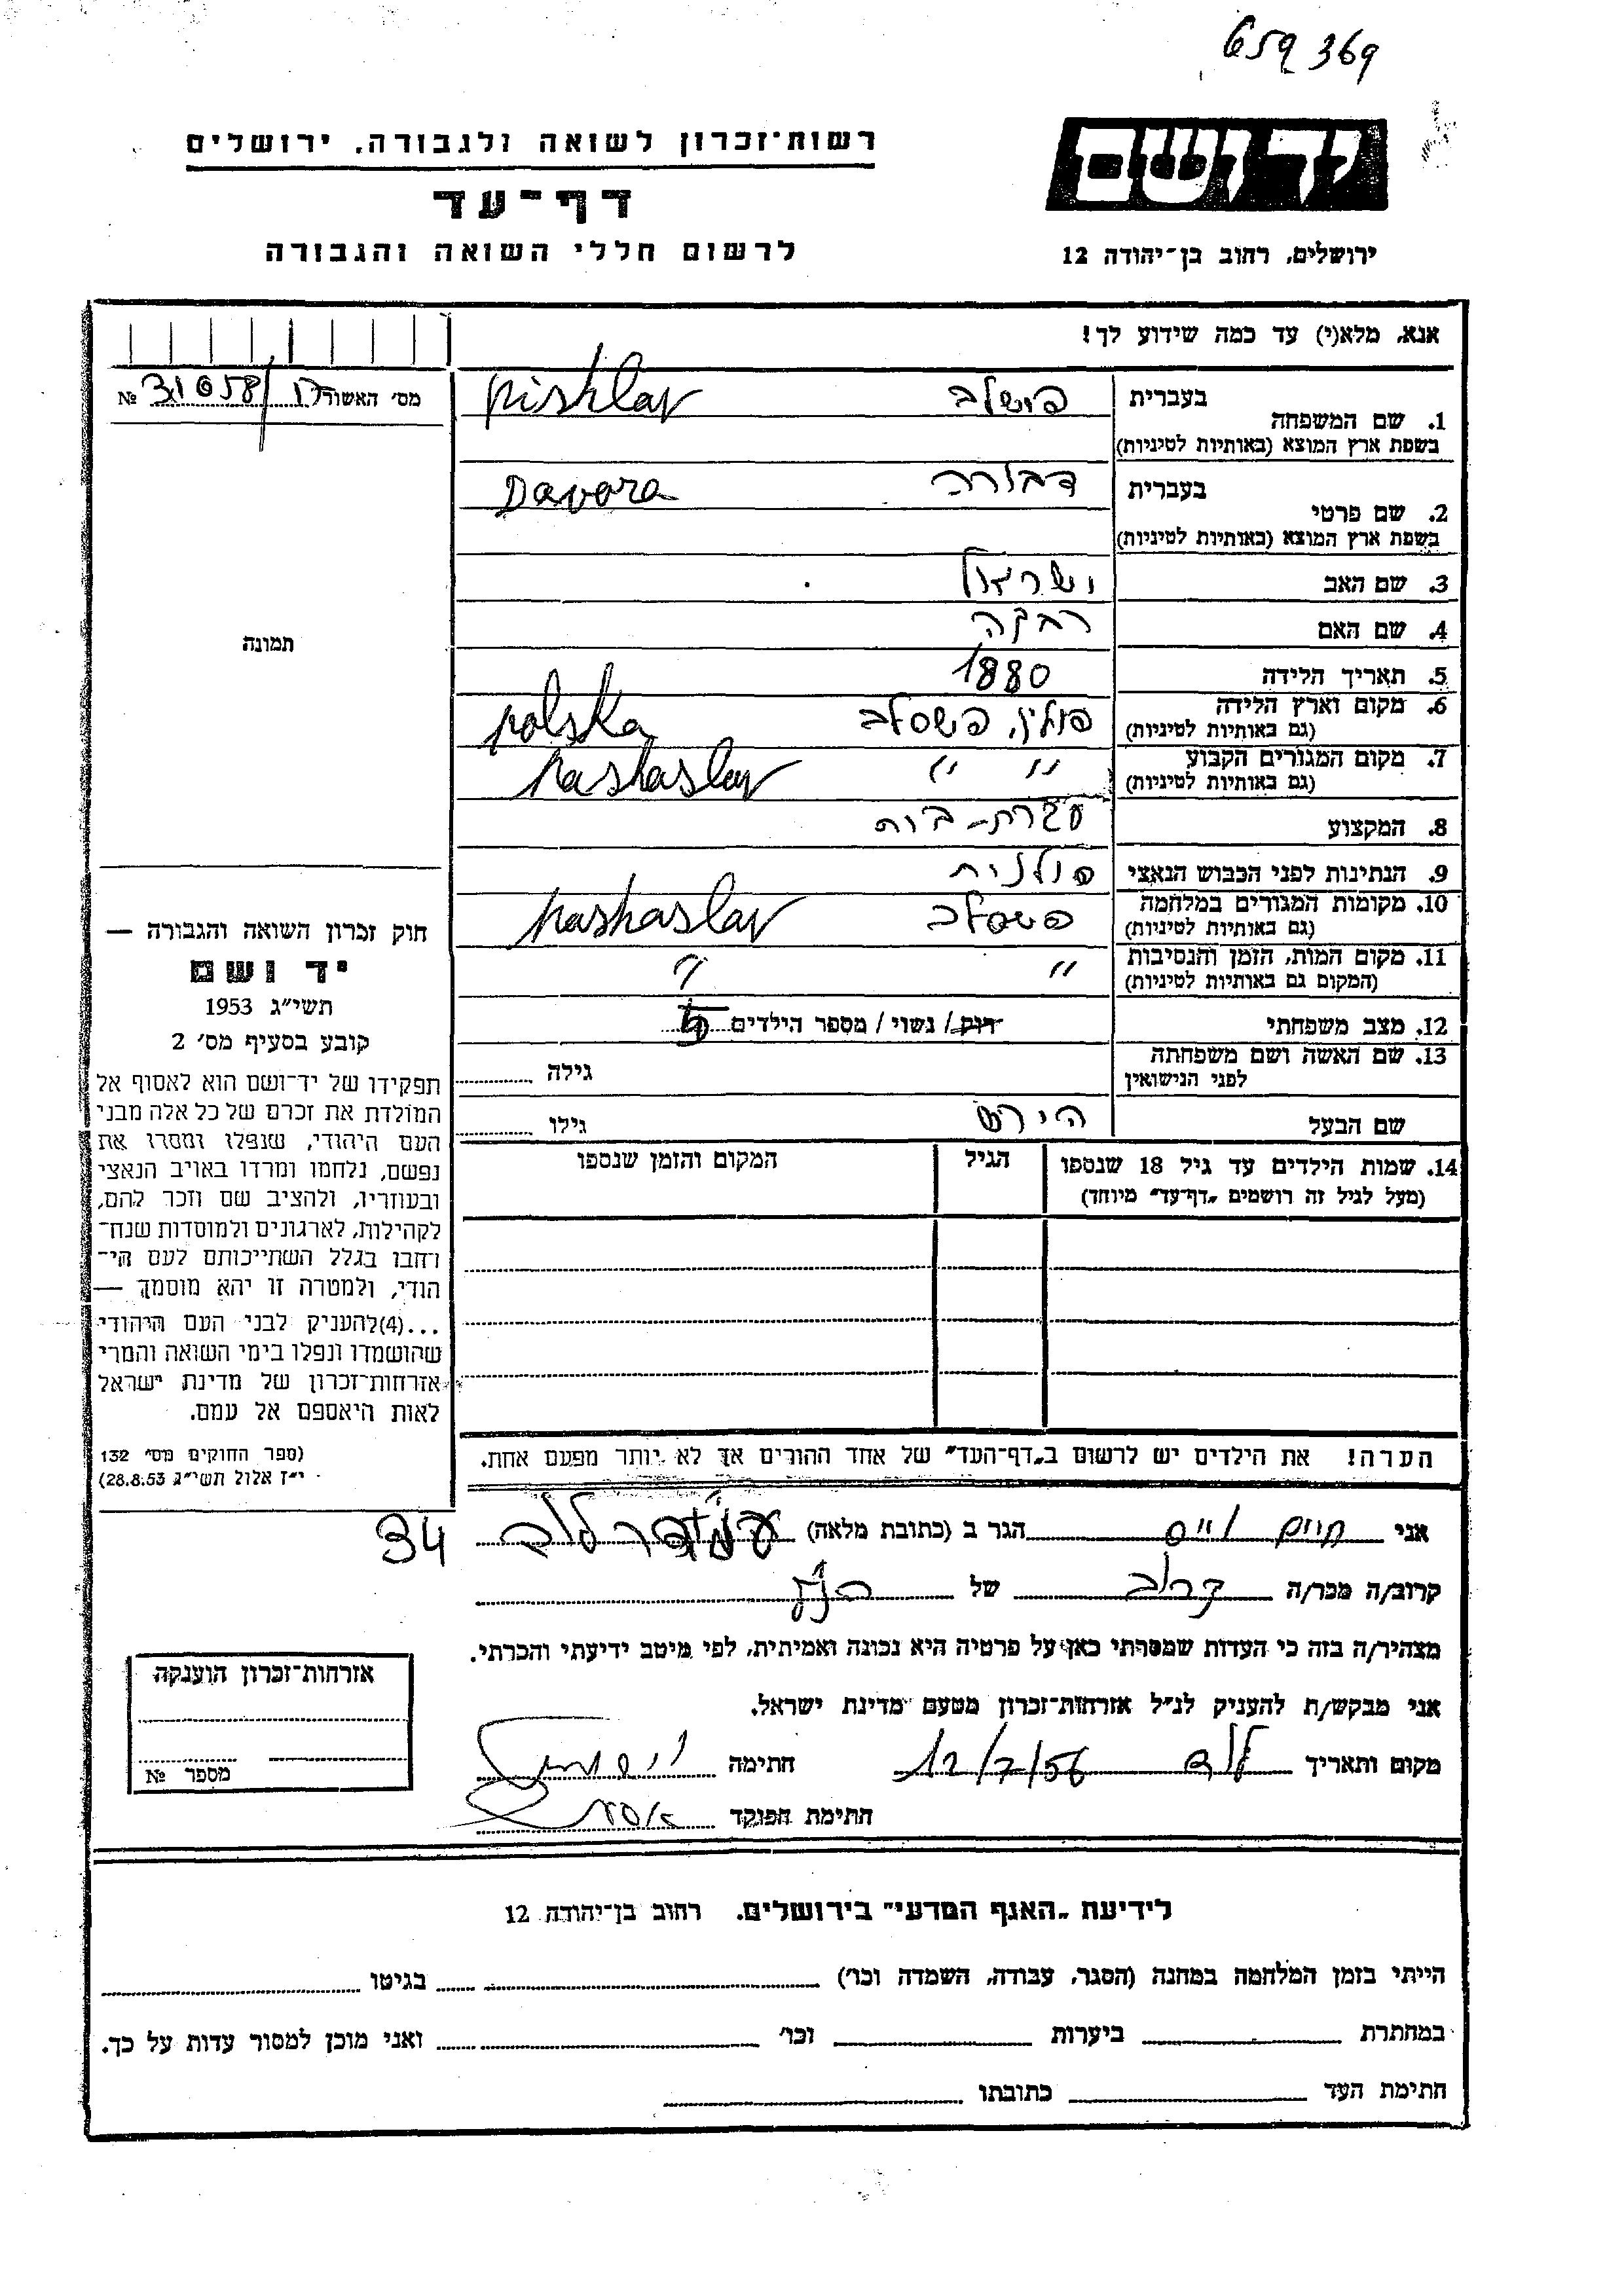 659 369
רשות־זכרון לשואה ולגבורה, ירושלים
דף־עד
לרשום חללי השואה והגבורה
יד ושם
ירושלים, רחוב בן־יהודה 12
אנא, מלא(י) עד כמה שידוע לך!
מס׳ האשור 31058/17 №
1. שם המשפחה בעברית פישלב pishlav
בשפת ארץ המוצא (באותיות לטיניות)
2. שם פרטי בעברית דבורה Davora
בשפת ארץ המוצא (באותיות לטיניות)
3. שם האב ישראל
4. שם האם רבקה
5. תאריך הלידה 1880
6. מקום וארץ הלידה פולין, פשסלב polska
(גם באותיות לטיניות)
7. מקום המגורים הקבוע " " pashaslav
(גם באותיות לטיניות)
8. המקצוע עקרת-בית
9. הנתינות לפני הכבוש הנאצי פולנית
10. מקומות המגורים במלחמה פשסלב pashaslav
(גם באותיות לטיניות)
11. מקום המות, הזמן והנסיבות " ?
(המקום גם באותיות לטיניות)
12. מצב משפחתי רוק / נשוי / מספר הילדים 5
13. שם האשה ושם משפחתה גילה
לפני הנישואין
שם הבעל הירש גילו
14. שמות הילדים עד גיל 18 שנספו הגיל המקום והזמן שנספו
(מעל לגיל זה רושמים „דף־עד״ מיוחד)
הערה! את הילדים יש לרשום ב„דף־העד״ של אחד ההורים אך לא יותר מפעם אחת.
תמונה
חוק זכרון השואה והגבורה —
יד ושם
תשי״ג 1953
קובע בסעיף מס׳ 2
תפקידו של יד־ושם הוא לאסוף אל
המולדת את זכרם של כל אלה מבני
העם היהודי, שנפלו ומסרו את
נפשם, נלחמו ומרדו באויב הנאצי
ובעוזריו, ולהציב שם וזכר להם,
לקהילות, לארגונים ולמוסדות שנח־
רבו בגלל השתייכותם לעם הי־
הודי, ולמטרה זו יהא מוסמך —
...(4)להעניק לבני העם היהודי
שהושמדו ונפלו בימי השואה והמרי
אזרחות־זכרון של מדינת ישראל
לאות היאספם אל עמם.
(ספר החוקים מס׳ 132
י״ז אלול תשי״ג 28.8.53)
אני חיים וייס הגר ב (כתובת מלאה) 34
קרוב/ה מכר/ה קרוב של
מצהיר/ה בזה כי העדות שמסרתי כאן על פרטיה היא נכונה ואמיתית, לפי מיטב ידיעתי והכרתי.
אני מבקש/ת להעניק לנ״ל אזרחות־זכרון מטעם מדינת ישראל.
מקום ותאריך לוד 12/7/56 חתימה
חתימת הפוקד
אזרחות־זכרון הוענקה
מספר №
לידיעת „האגף המדעי״ בירושלים. רחוב בן־יהודה 12
הייתי בזמן המלחמה במחנה (הסגר, עבודה, השמדה וכו׳) בגיטו
במחתרת ביערות וכו׳ ואני מוכן למסור עדות על כך.
חתימת העד כתובתו